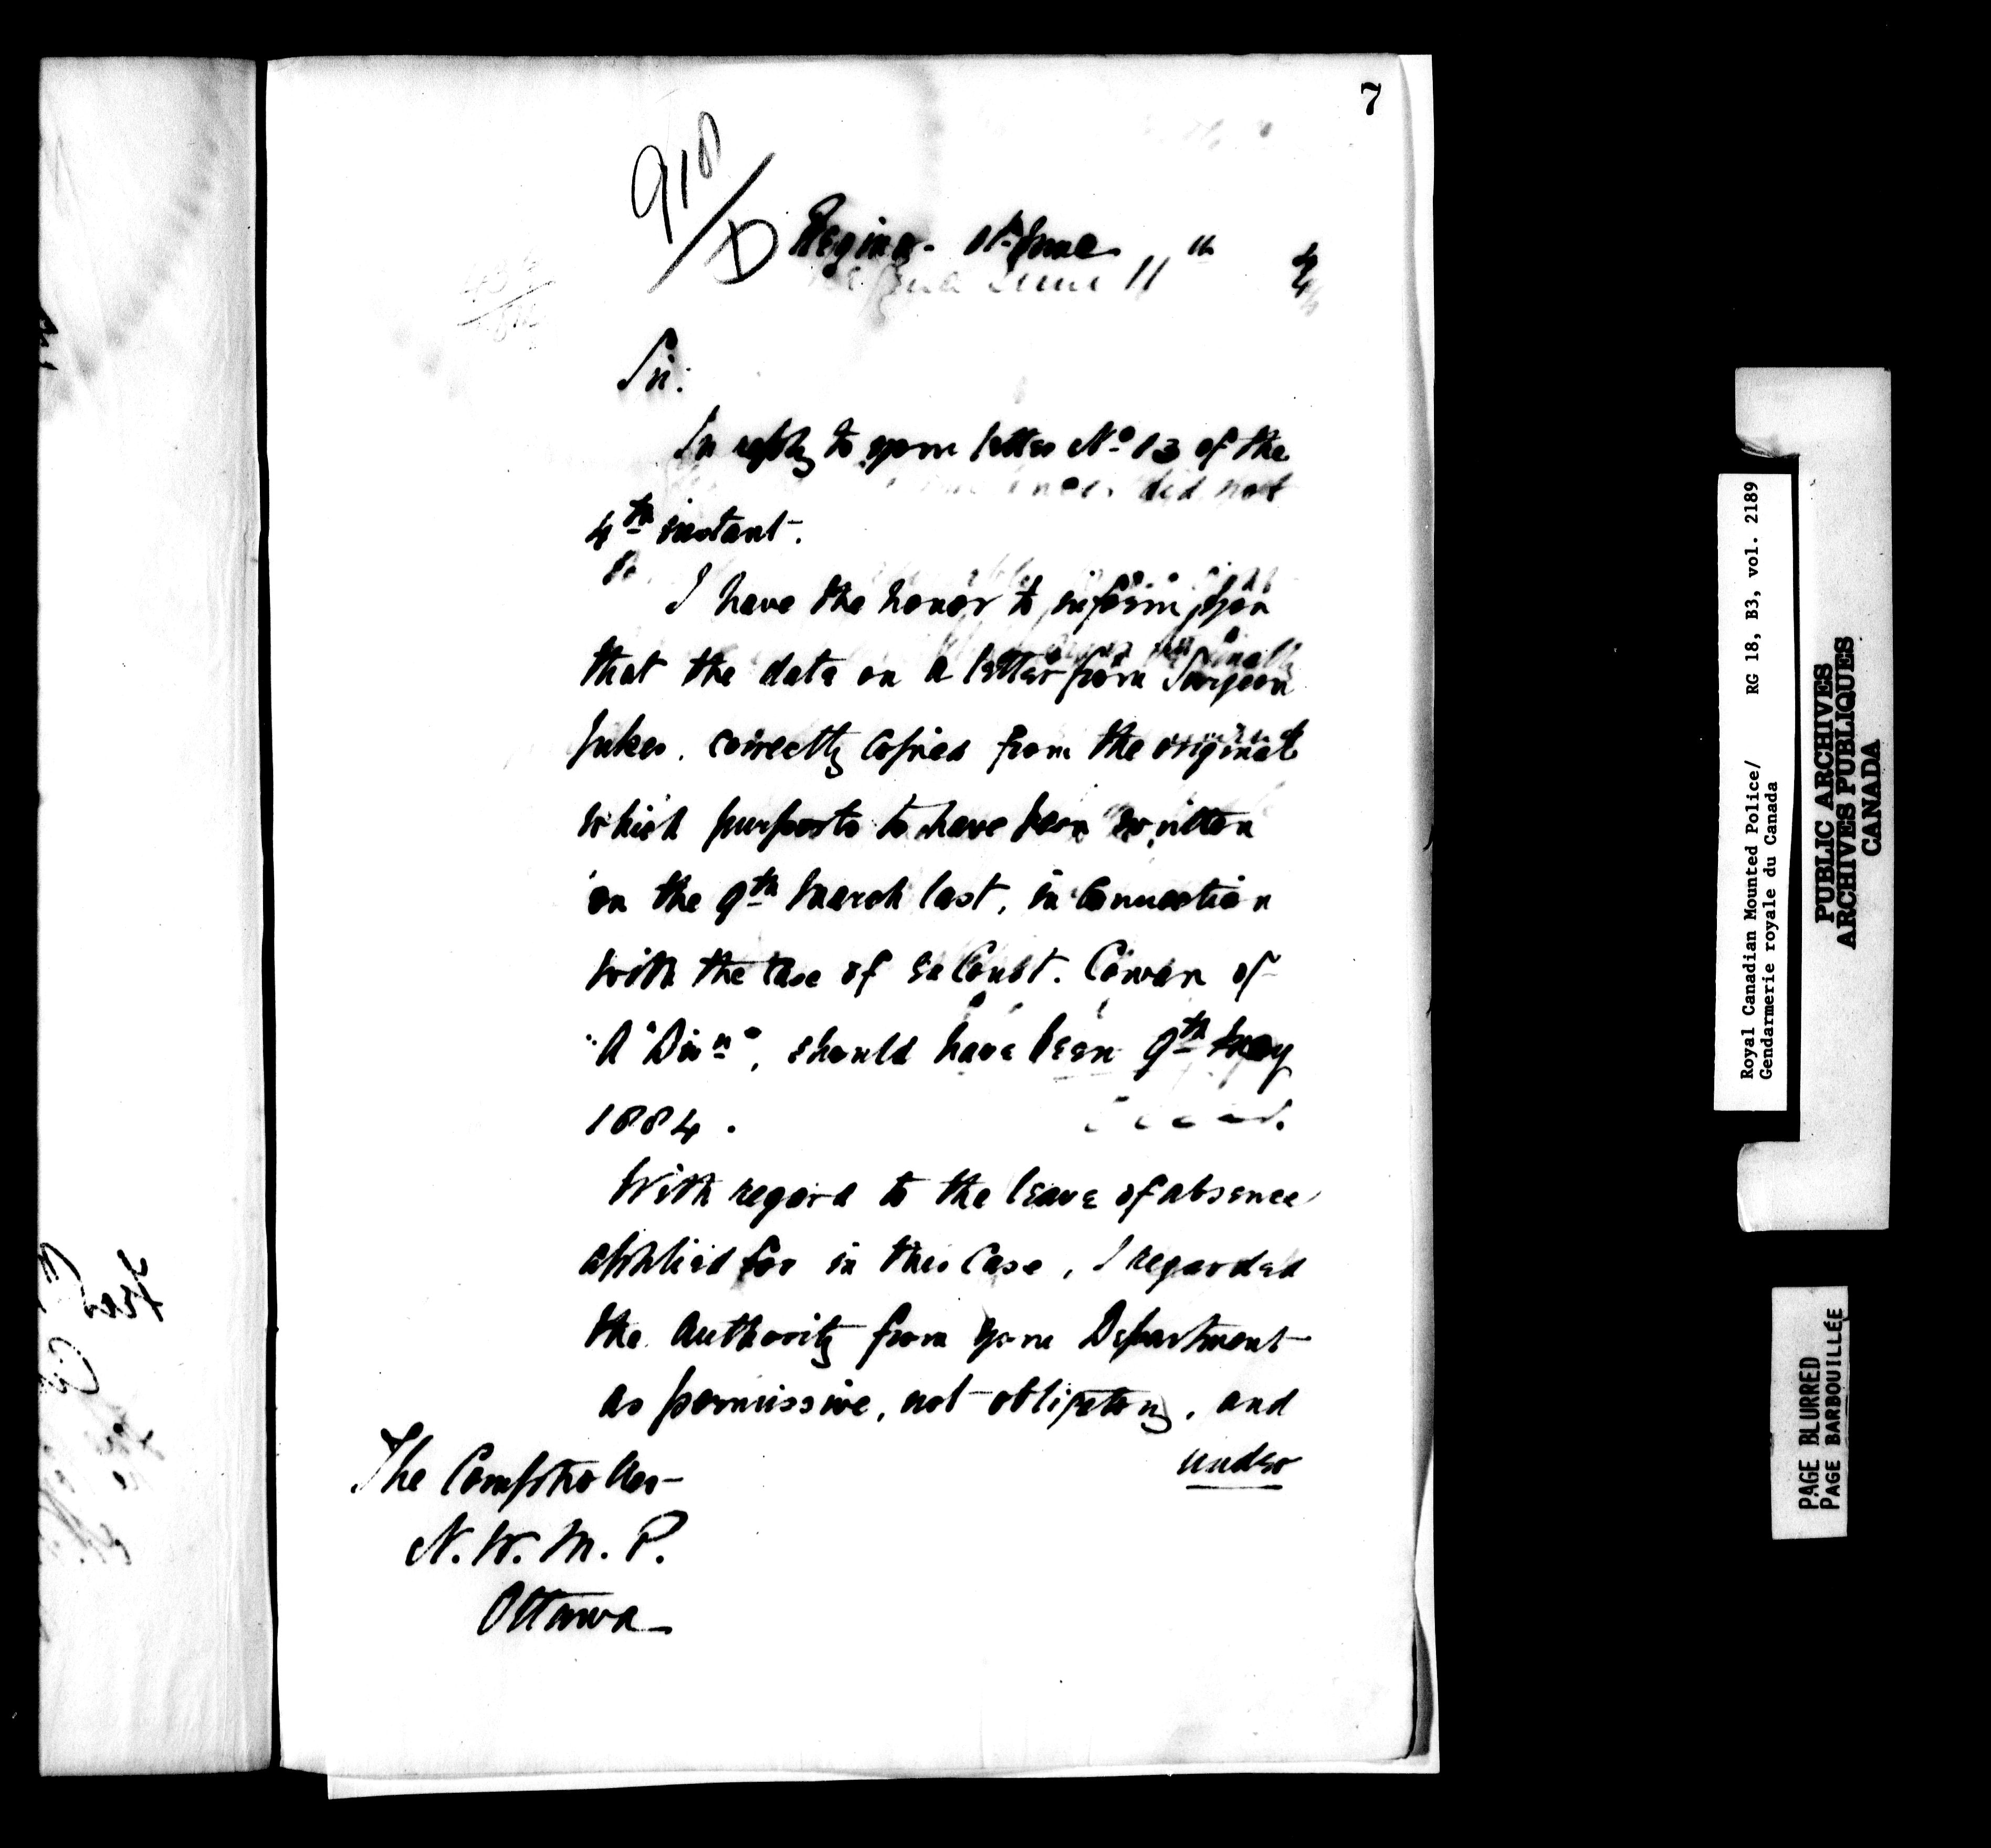 7
918/D
Regina. 11th June
Sir:
In reply to your letter No 13 of the
4th instant.
I have the honor to inform you
that the date on a letter from Surgeon
Jukes, correctly copied from the original
which purports to have been written
on the 9th March last, in connection
with the case of Ex Const. Cowan of
"A" Divn., should have been 9th May
1884.
With regard to the leave of absence
applied for in this case, I regarded
the authority from your Department
as permissive, not obligatory, and
under
The Comptroller
N. W. M. P.
Ottawa
Royal Canadian Mounted Police/ RG 18, B3, vol. 2189
Gendarmerie royale du Canada
PUBLIC ARCHIVES
ARCHIVES PUBLIQUES
CANADA
PAGE BLURRED
PAGE BARBOUILLÉE